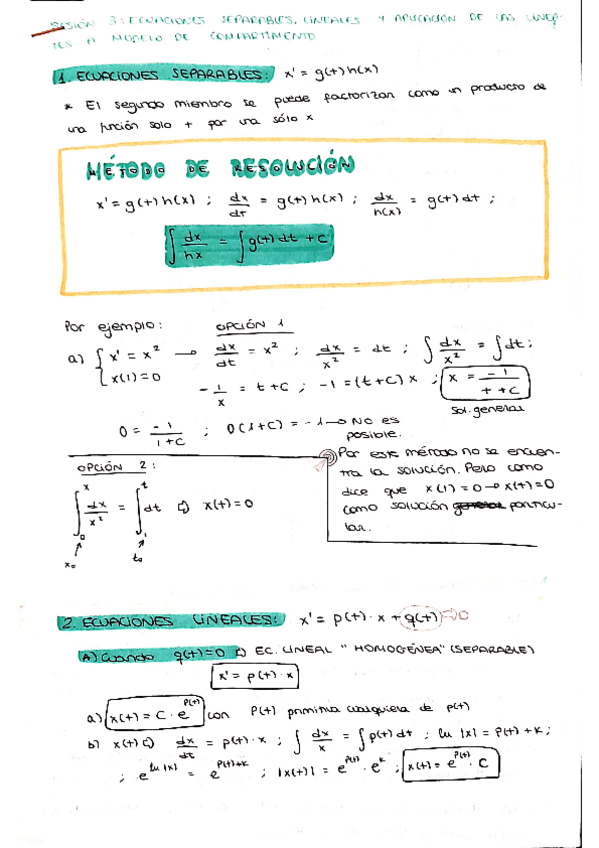 SESIÓN 3: ECUACIONES SEPARABLES, LINEALES Y APLICACIÓN DE LAS LINEA-
LES A MODELO DE COMPARTIMENTO
1. ECUACIONES SEPARABLES: x' = g(t) h(x)
* El segundo miembro se puede factorizar como un producto de
una función solo t por una sólo x
MÉTODO DE RESOLUCIÓN
x' = g(t) h(x) ; dx/dt = g(t) h(x) ; dx/h(x) = g(t) dt ;
∫ dx/hx = ∫ g(t) dt + C
Por ejemplo: OPCIÓN 1
a) { x' = x² → dx/dt = x² ; dx/x² = dt ; ∫ dx/x² = ∫ dt ;
x(1) = 0
- 1/x = t + C ; -1 = (t + C) x ; x = -1/(t + C)
Sol. general
0 = -1/(1 + C) ; 0(1 + C) = -1 → NO es
posible.
OPCIÓN 2:
∫ dx/x² = ∫ dt ⇨ x(t) = 0
x 0 t 1
x₀ t₀
Por este método no se encuen-
tra la solución. Pero como
dice que x(1) = 0 → x(t) = 0
como solución general particu-
lar.
2. ECUACIONES LINEALES: x' = p(t) · x + q(t) ⇒ 0
A) Cuando q(t) = 0 ⇨ EC. LINEAL "HOMOGÉNEA" (SEPARABLE)
x' = p(t) · x
a) x(t) = C · e^P(t) con P(t) primitiva cualquiera de p(t)
b) x(t) ⇨ dx/dt = p(t) · x ; ∫ dx/x = ∫ p(t) dt ; ln |x| = P(t) + K ;
; e^ln|x| = e^P(t)+K ; |x(t)| = e^P(t) · e^K ; x(t) = e^P(t) · C